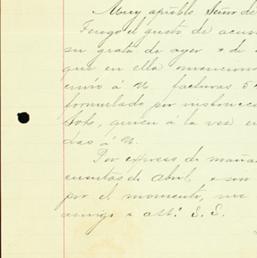 Muy apreble Señor de
Tengo el gusto de acus
su grata de ayer & de
que en ella menciona
envío á U. facturas 5
formulado, por instrucc
Soto, quien á la vez en
das á U.
Por express de maña
cuentas de Abril, & son
por el momento, me
amigo & att.º S. S.